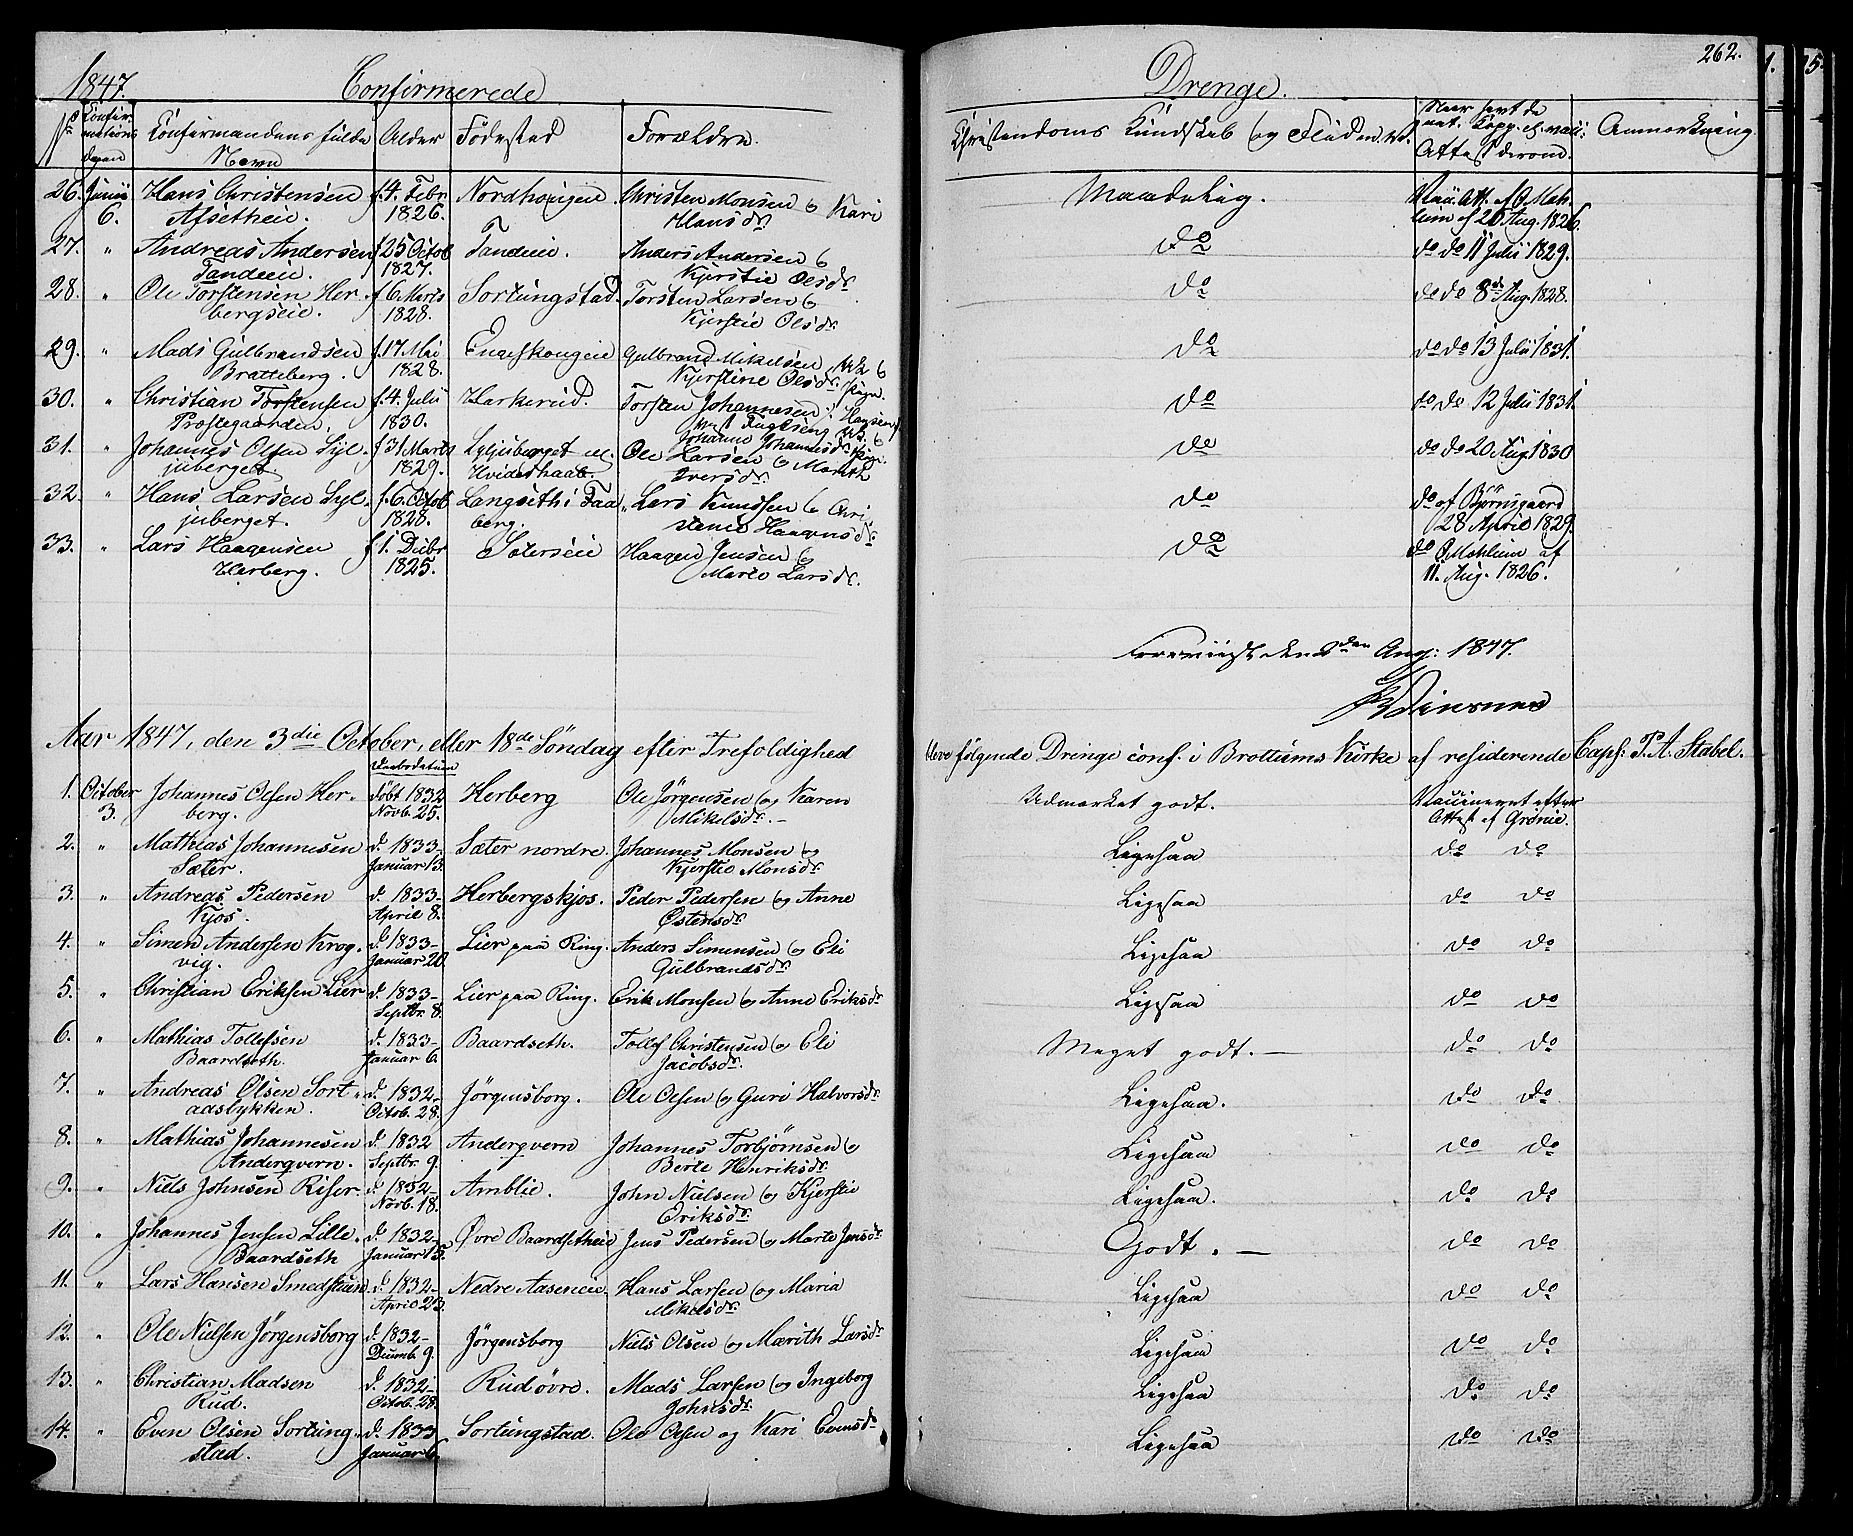 1847.
Confirmerede
No Confirmations dagen
Confirmandens fulde Navn
Alder
Födested
Forældre.
26. Junii 6. Hans Christensen f. 4. Febr. Nordhougen Christen Monsen og Kari
Afsetheie. 1826. Hansdr.
27. " Andreas Andersen f 25 Octob Tandeeie. Anders Andersen &
Tandeeie. 1827. Kjerstie Olsdr.
28. " Ole Torstensen Her- f. 6 Marts Sortungstad. Torsten Larsen og
bergseie. 1828. Kjerstie Olsdr.
29. " Mads Gulbrandsen f. 17 Mai Gulbrand Mikelsen
Bratteberg. 1828. Kjerstine Olsdr.
30. " Christian Torstensen f. 4. Julii Harkerud. Torsten Johannesen
Præstegaarden. 1830.
Johanne Johannesdr.
31. " Johannes Olsen Lyl- f 31 Marts Lyljuberget Ole Larsen og Marith
juberget. 1829. Iversdr.
32. " Hans Larsen Lyl- f. 6. Octob Langseth i Faa- Lars Knudsen & Chri-
juberget. 1828. berg. Haagensdr.
33. " Lars Haagensen f 1. Decbr Sæterseie Haagen Jensen og
Herberg. 1825. Marte Larsdr.
Aar 1847, den 3die October, eller 18de Söndag efter Trefoldighed
1. October 3. Johannes Olsen Her- Födt 1832 Herberg Ole Jörgensen og Karen
berg. Novb. 25. Mikelsdr. -
2. " Mathias Johannesen d. 1833- Sæter nordre. Johannes Monsen og
Sæter. Januar 13. Kjerstie Monsdr.
3. " Andreas Pedersen d. 1833- Herbergskjos. Peder Pedersen og Anne
Kjos. April 8. Östensdr.
4. " Simen Andersen Krog- d. 1833- Lier paa Ring. Anders Simensen og Eli
vig. Januar 20 Gulbrandsdr.
5. " Christian Eriksen Lier d. 1833- Lier paa Ring. Erik Monsen og Anne Eriksdr
Septbr. 8.
6. " Mathias Tollefsen d. 1833- Baardseth. Tollef Christensen og Eli
Baardseth. Januar 6. Jacobsdr.
7. " Andreas Olsen Sort- d. 1832- Jörgensborg. Ole Olsen og Guri Halvorsdr.
adslykken. Octob. 28.
8. " Mathias Johannesen d. 1832 Anderqvern Johannes Torbjörnsen og
Anderqvern. Septbr. 9. Berte Henriksdr.
9. " Niels Johnsen Riser. d. 1832- Amblie. John Nielsen og Kjerstie
Novb. 18. Eriksdr.
10. " Johannes Jensen Lille- d. 1832- Övre Baardsetheie Jens Pedersen og Marte Jensdr.
Baardseth Januar 15.
11. " Lars Hansen Smedstuen. d. 1832- Nedre Aaseneie. Hans Larsen og Maria
April 23. Mikelsdr.
12. " Ole Nielsen Jörgensborg d. 1832- Jörgensborg Niels Olsen og Marith Larsdr
Decemb. 9.
13. " Christian Madsen d. 1832- Rud övre. Mads Larsen og Ingeborg
Rud. Octob. 28. Johnsdr.
14. " Even Olsen Sortung- d. 1833 Sortungstad. Ole Olsen og Kari Evensdr
stad. Januar 6.
Drenge.
262.
Christendoms Kundskab og Fliden
Attest derom.
Anmærkning
Maadelig. Vacc. Att. af O. Mæh-
lum af 20 Aug. 1826.
do do do 11 Julii 1829.
do do do 8de Aug. 1828.
do do do 13 Julii 1831.
do do do 12 Julii 1831.
do do do 20 Aug 1830
do do af Björnsgaard
28 April 1829.
do do O. Mæhlum af
11. Aug. 1826.
den 2den Aug: 1847.
bleve fölgende Drenge conf. i Brottums Kirke af residerende Capl: P. A. Stabel.
Udmærket godt. Vaccineret efter
Attest af Grönie.
Ligesaa do do
Ligesaa do do
Ligesaa do do
Ligesaa do do
Meget godt. - do do
Ligesaa. do do.
Ligesaa do do
Ligesaa. do do
Godt. - do do
Ligesaa do do
Ligesaa do do
Ligesaa do do
Ligesaa do do